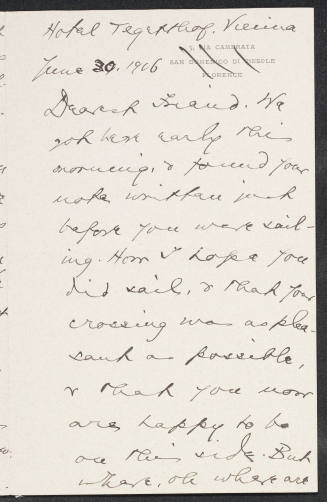 Hotel Tegetthof. Vienna
5, VIA CAMERATA
SAN DOMENICO DI FIESOLE
FLORENCE
June 30. 1906
Dearest Friend. We
got here early this
morning, & found your
note written just
before you were sail-
ing. How I hope you
did sail, & that your
crossing was as plea-
sant as possible,
& that you now
are happy to be
on this side. But
where, oh where are